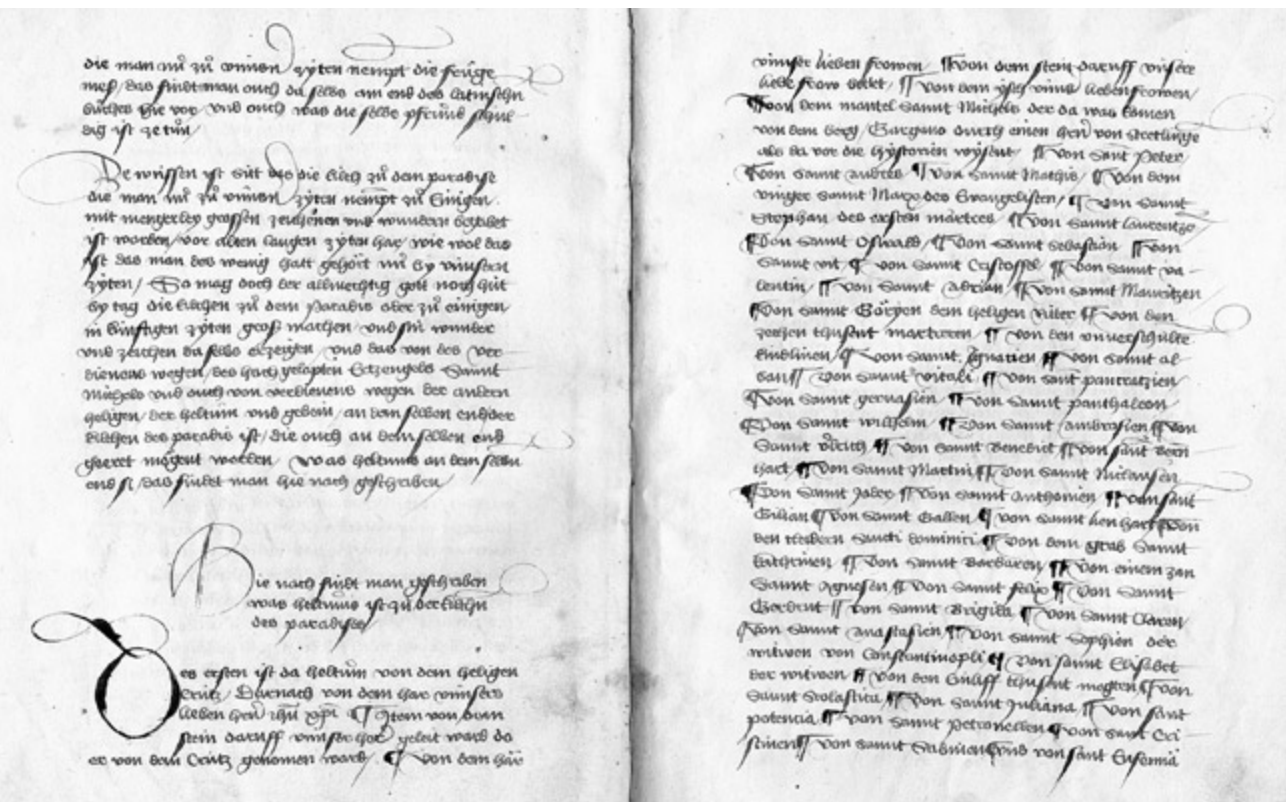 die man nu zu unnsen zyten nempt die frůge
mess, das findt man ouch da selbs am end des latinschen
bůches hie vor, vnd ouch was die selbe pfrund schul-
dig ist ze tůn
Ze wüssen ist sit das die kilch zu dem paradise
die man nu zu vnnsen zyten nempt zu Einigen
mit mengerley grossen zeichenen vnd wundern begabet
ist worden, vor alten langen zyten har, wie wol das
ist das man des wenig hatt gehört nu by vnnsern
zyten, So mag doch der allmechtig gott noch hüt
by tag die kilchen zu dem Paradis oder zu einigen
in künftigen zyten gross machen vnd sin wunder
vnd zeichen da selbs erzeigen, vnd das von des ver-
dienens wegen, des hoch gelopten Ertzengels Sannt
Michels vnd ouch von verdienens wegen der andern
heligen, der heltum vnd gebein, an dem selben end der
kilchen des paradis ist, die ouch an dem selben end
geeret mögent werden, was heltums an dem selben
end si, das findt man hie nach geschriben
Hie nach findt man geschriben
was heltums ist zu der kilchen
des paradises
Des ersten ist da heltum von dem heligen
Crütz, Darnach von dem har vnnsers
lieben hern ihu xpi ¶ Item von dem
stein daruff vnnser her geleit ward do
er von dem Crütz genomen ward, ¶ von dem har
vnnser lieben frowen, ¶ von dem stein daruff vnsere
liebe frow ¶ von dem vnns lieben frowen,
¶ von dem mantel Sannt Michels der da was komen
von dem berg, Gargano durch einen hern von Stretlingen
als da vor die hystorien wysent, ¶ von Sant Peter,
¶ von Sannt andres ¶ von Sannt Mathis, ¶ von dem
vinger Sannt Marx des Evangelisten, ¶ von Sannt
Stephan des ersten martres, ¶ von Sannt laurentzen
¶ von Sannt Oswald, ¶ von Sannt Sebastion ¶ von
Sannt vit, ¶ von Sannt Cristoffel, ¶ von Sannt va-
lentin, ¶ von Sannt Adrian, ¶ von Sannt Mauritzen
¶ von Sannt Göryen dem heligen Ritter ¶ von den
zechen thusent martreren, ¶ von den vnverschulten
kindlinen, ¶ von Sannt Ignatien ¶ von Sannt al-
ban ¶ von Sannt vitali, ¶ von Sant pancratzien,
¶ von Sannt gervasien, ¶ von Sannt panthaleon,
¶ von Sannt wilhelm, ¶ von Sannt ambrosien ¶ von
Sannt vlrich ¶ von Sannt Benedict ¶ von Sant bern-
hart, ¶ von Sannt Martin ¶ von Sannt Niclausen
¶ von Sannt ¶ von Sannt Anthonien ¶ von Sant
Gilian ¶ von Sannt Gallen ¶ von Sannt lienhart ¶ von
den kleidern Sancti dominici ¶ von dem grab Sannt
katrinen ¶ von Sannt Barbaren ¶ von einem zan
Sannt Agnesen ¶ von Sannt felix ¶ von Sannt
Gerdrut ¶ von Sannt Brigida ¶ von Sannt Claren,
¶ von Sannt anastasien, ¶ von Sannt Sophien der
witwen von Constantinopli ¶ von Sannt Elisabet
der witwen ¶ von den Einliff thusent megten, ¶ von
Sannt Scolastica, ¶ von Sannt Juliana, ¶ von Sant
potencia ¶ von Sannt petronellen ¶ von Sant Cri-
stinen ¶ von Sannt Sabinen vnd von Sant Eufemia